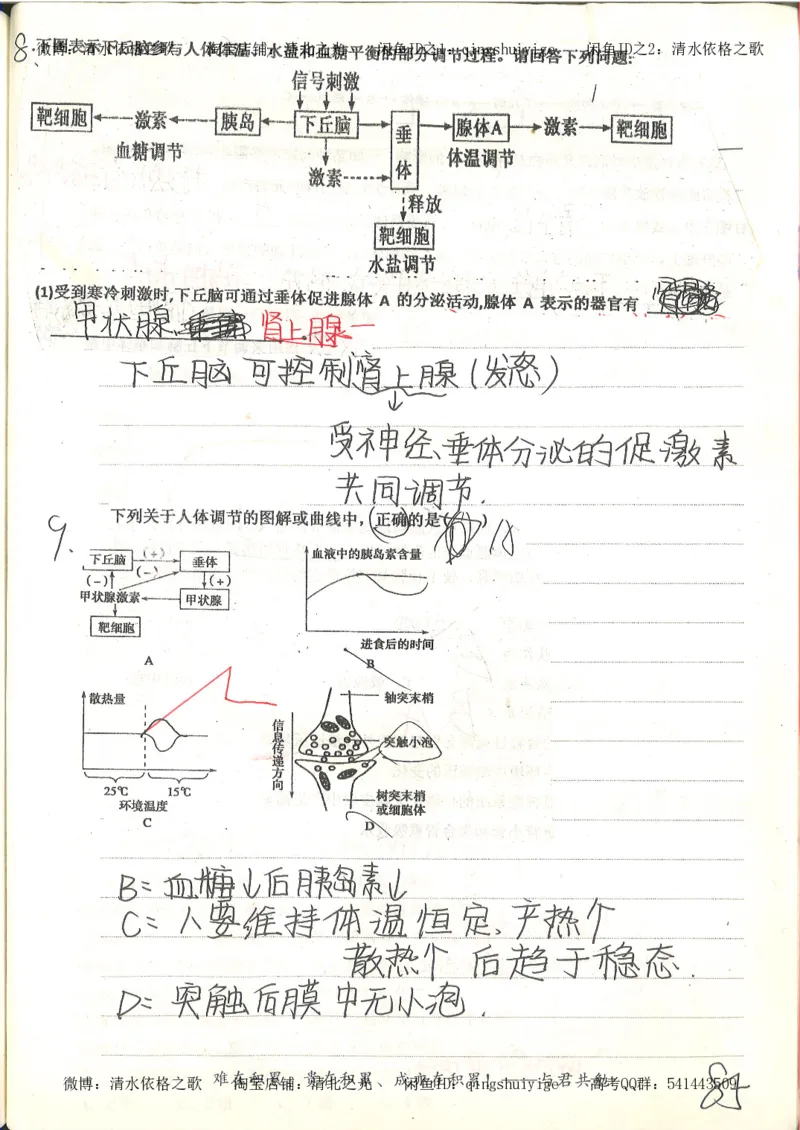 8.下图表示下丘脑参与人体体温、水盐和血糖平衡的部分调节过程。请回答下列问题:
微博：清水依格之歌 淘宝店铺：清北之光 闲鱼ID之1：qingshuiyige 闲鱼ID之2：清水依格之歌
信号刺激
靶细胞 激素 胰岛 下丘脑 垂体 腺体A 激素 靶细胞
血糖调节 体温调节
激素
释放
靶细胞
水盐调节
(1)受到寒冷刺激时,下丘脑可通过垂体促进腺体 A 的分泌活动,腺体 A 表示的器官有
甲状腺、肾上腺
下丘脑可控制肾上腺(发怒)
受神经、垂体分泌的促激素
共同调节.
9. 下列关于人体调节的图解或曲线中，正确的是( )
下丘脑 (+) 垂体
(−) (−) (+)
甲状腺激素 甲状腺
靶细胞
A
血液中的胰岛素含量
进食后的时间
B
散热量
25℃ 15℃
环境温度
C
信息传递方向
轴突末梢
突触小泡
树突末梢
或细胞体
D
B= 血糖↓后胰岛素↓
C= 人要维持体温恒定、产热个
散热个 后趋于稳态.
D= 突触后膜中无小泡.
难在积累、贵在积累、成或在积累！——与君共勉
微博：清水依格之歌 淘宝店铺：清北之光 闲鱼ID：qingshuiyige 高考QQ群：541443509
85